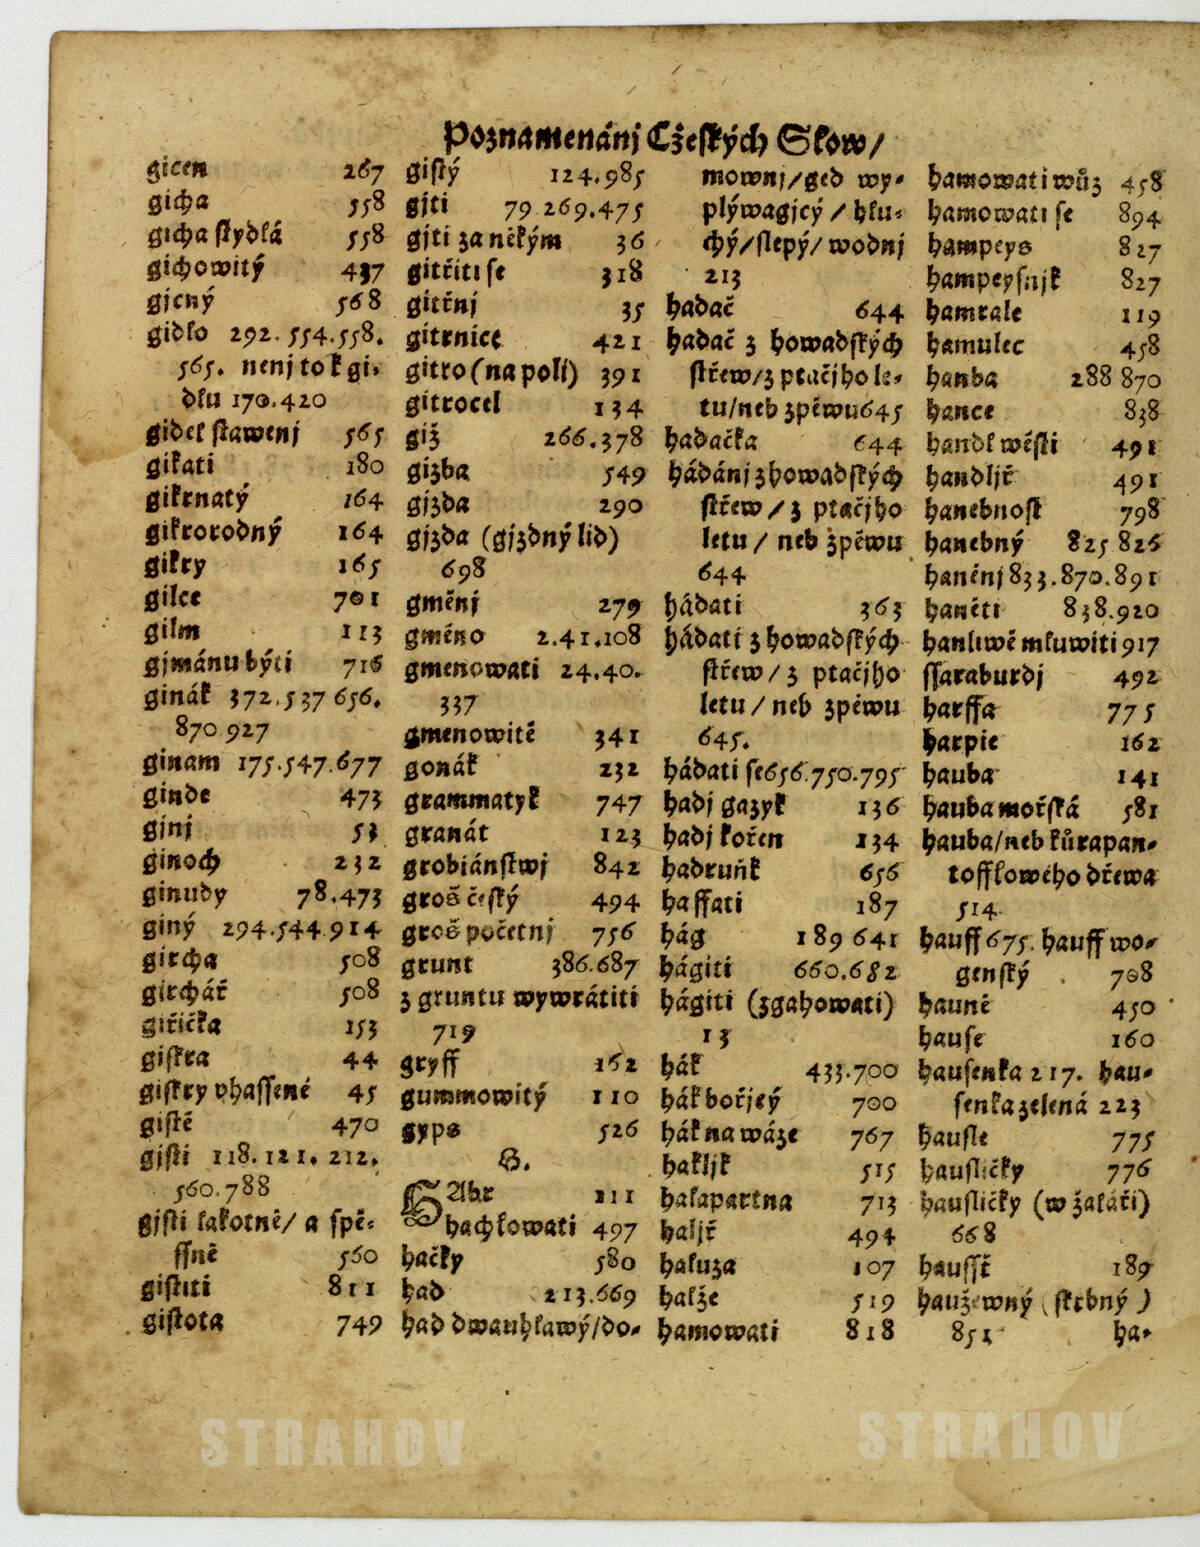 Poznamenánj Cžeſkých Slow/
gicen 267
gicha 558
gicha ſtydlá 558
gichowitý 437
gjcný 568
gidlo 292.554.558.
565. nenj to k gi-
dlu 170.420
gidel ſtawenj 565
gikati 180
gikrnatý 164
gikrorodný 164
gikry 165
gilce 701
gilm 113
gjmánu býti 716
ginák 372.537 656.
870 927
ginam 175.547.677
ginde 473
ginj 53
ginoch 232
ginudy 78.473
giný 294.544 914
gircha 508
girchář 508
giřička 153
giſkra 44
giſkry vhaſſené 45
giſtě 470
gjſti 118.121.212.
560.788
gjſti lakotně/ a ſpě-
ſſně 560
giſtiti 811
giſtota 749
giſtý 124.985
gjti 79 269.475
gjti za někým 36
gitřiti ſe 318
gitřnj 35
gitrnice 421
gitro (na poli) 391
gitrocel 134
giž 266.378
gizba 549
gjzda 290
gjzda (gjzdný lid)
698
gměnj 279
gméno 2.41.108
gmenowati 24.40.
337
gmenowitě 341
gonák 232
grammatyk 747
granát 123
grobiánſtwj 842
groš český 494
groš početnj 756
grunt 386.687
z gruntu wywrátiti
719
gryff 162
gummowitý 110
gyps 526
H.
HAbr 111
hachlowati 497
háčky 580
had 213.669
had dwauhlawý/do-
mownj/ged wy-
plýwagjcý / hlu-
chý/ſlepý/ wodnj
213
hadač 644
hadač z howadſkých
ſtřew/z ptačjho le-
tu/neb zpěwu 645
hadačka 644
hádánj z howadſkých
ſtřew / z ptačjho
letu / neb zpěwu
644
hádati 363
hádati z howadſkých
ſtřew/ z ptačjho
letu / neb zpěwu
645.
hádati ſe 656.750.795
hadj gazyk 136
hadj kořen 134
hadruňk 656
haffati 187
hág 189 641
hágiti 660.682
hágiti (zgahowati)
13
hák 433.700
hák bořjcý 700
hák na wáze 767
hakljk 515
halapartna 713
haljř 494
haluza 107
halže 519
hamowati 818
hamowati wůz 458
hamowati ſe 894
hampeys 827
hampeyſnjk 827
hamrale 119
hamulec 458
hanba 288 870
hance 838
handl wéſti 491
handljř 491
hanebnoſt 798
hanebný 825 826
haněnj 833.870.891
haněti 838.920
hanliwě mluwiti 917
ſſaraburdj 492
harffa 775
harpie 162
hauba 141
hauba mořſká 581
hauba/neb kůra pan-
tofflowého dřewa
514
hauff 675. hauff wo-
genſký 708
hauně 450
hauſe 160
hauſenka 217. hau-
ſenka zelená 223
hauſle 775
hauſličky 776
hauſličky (w žaláři)
668
hauſſť 189
haužewný (ſkrbný )
851 ha-
STRAHOV STRAHOV